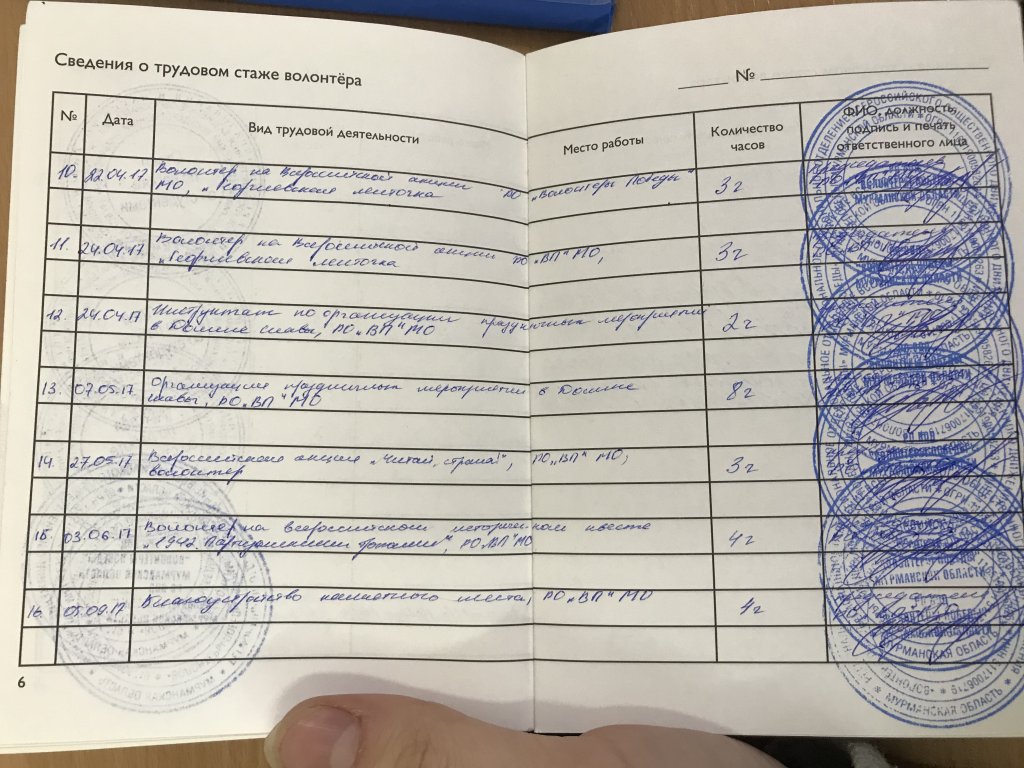 Сведения о трудовом стаже волонтёра
№
№ Дата Вид трудовой деятельности Место работы Количество часов ФИО, должность, подпись и печать ответственного лица
10. 22.04.17 Волонтер на Всероссийской акции РО „Волонтеры Победы" 3 г
МО, „Георгиевская ленточка
11. 24.04.17 Волонтер на Всероссийской акции РО „ВП" МО, 3 г
„Георгиевская ленточка
12. 24.04.17 Инструктаж по организации праздничных мероприятий 2 г
в Долине славы, РО „ВП" МО
13. 07.05.17 Организация праздничных мероприятий в Долине 8 г
славы, РО „ВП" МО
14. 27.05.17 Всероссийская акция „Читай, страна!", РО „ВП" МО, 3 г
волонтер
15. 03.06.17 Волонтер на всероссийском историческом квесте 4 г
„1942. Партизанскими тропами", РО „ВП" МО
16. 05.09.17 Благоустройство памятного места, РО „ВП" МО 4 г
МУРМАНСКАЯ ОБЛАСТЬ
6